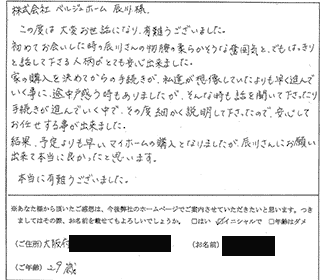 株式会社 ベルジュホーム 辰川様.
この度は大変お世話になり、有難うございました。
初めてお会いした時の辰川さんの物腰の柔らかそうな雰囲気と、でもはっきり
と話して下さる人柄がとても安心出来ました。
家の購入を決めてからの手続きが、私達が想像していたよりも早く進んで
いく事に、途中戸惑う時もありましたが、そんな時も話を聞いて下さったり
手続きが進んでいく中で、その度細かく説明して下さったので、安心して
お任せする事が出来ました。
結果、予定よりも早いマイホームの購入となりましたが、辰川さんにお願い
出来て本当に良かったと思います。
本当に有難うございました。
※あなた様から頂いたご感想は、今後弊社のホームページでご案内させていただきたいと思います。つき
ましてはその際、お名前を載せてもよろしいでしょうか。 □はい ☑イニシャルで □年齢はダメ
(ご住所) 大阪府 (お名前)
(ご年齢) 29歳